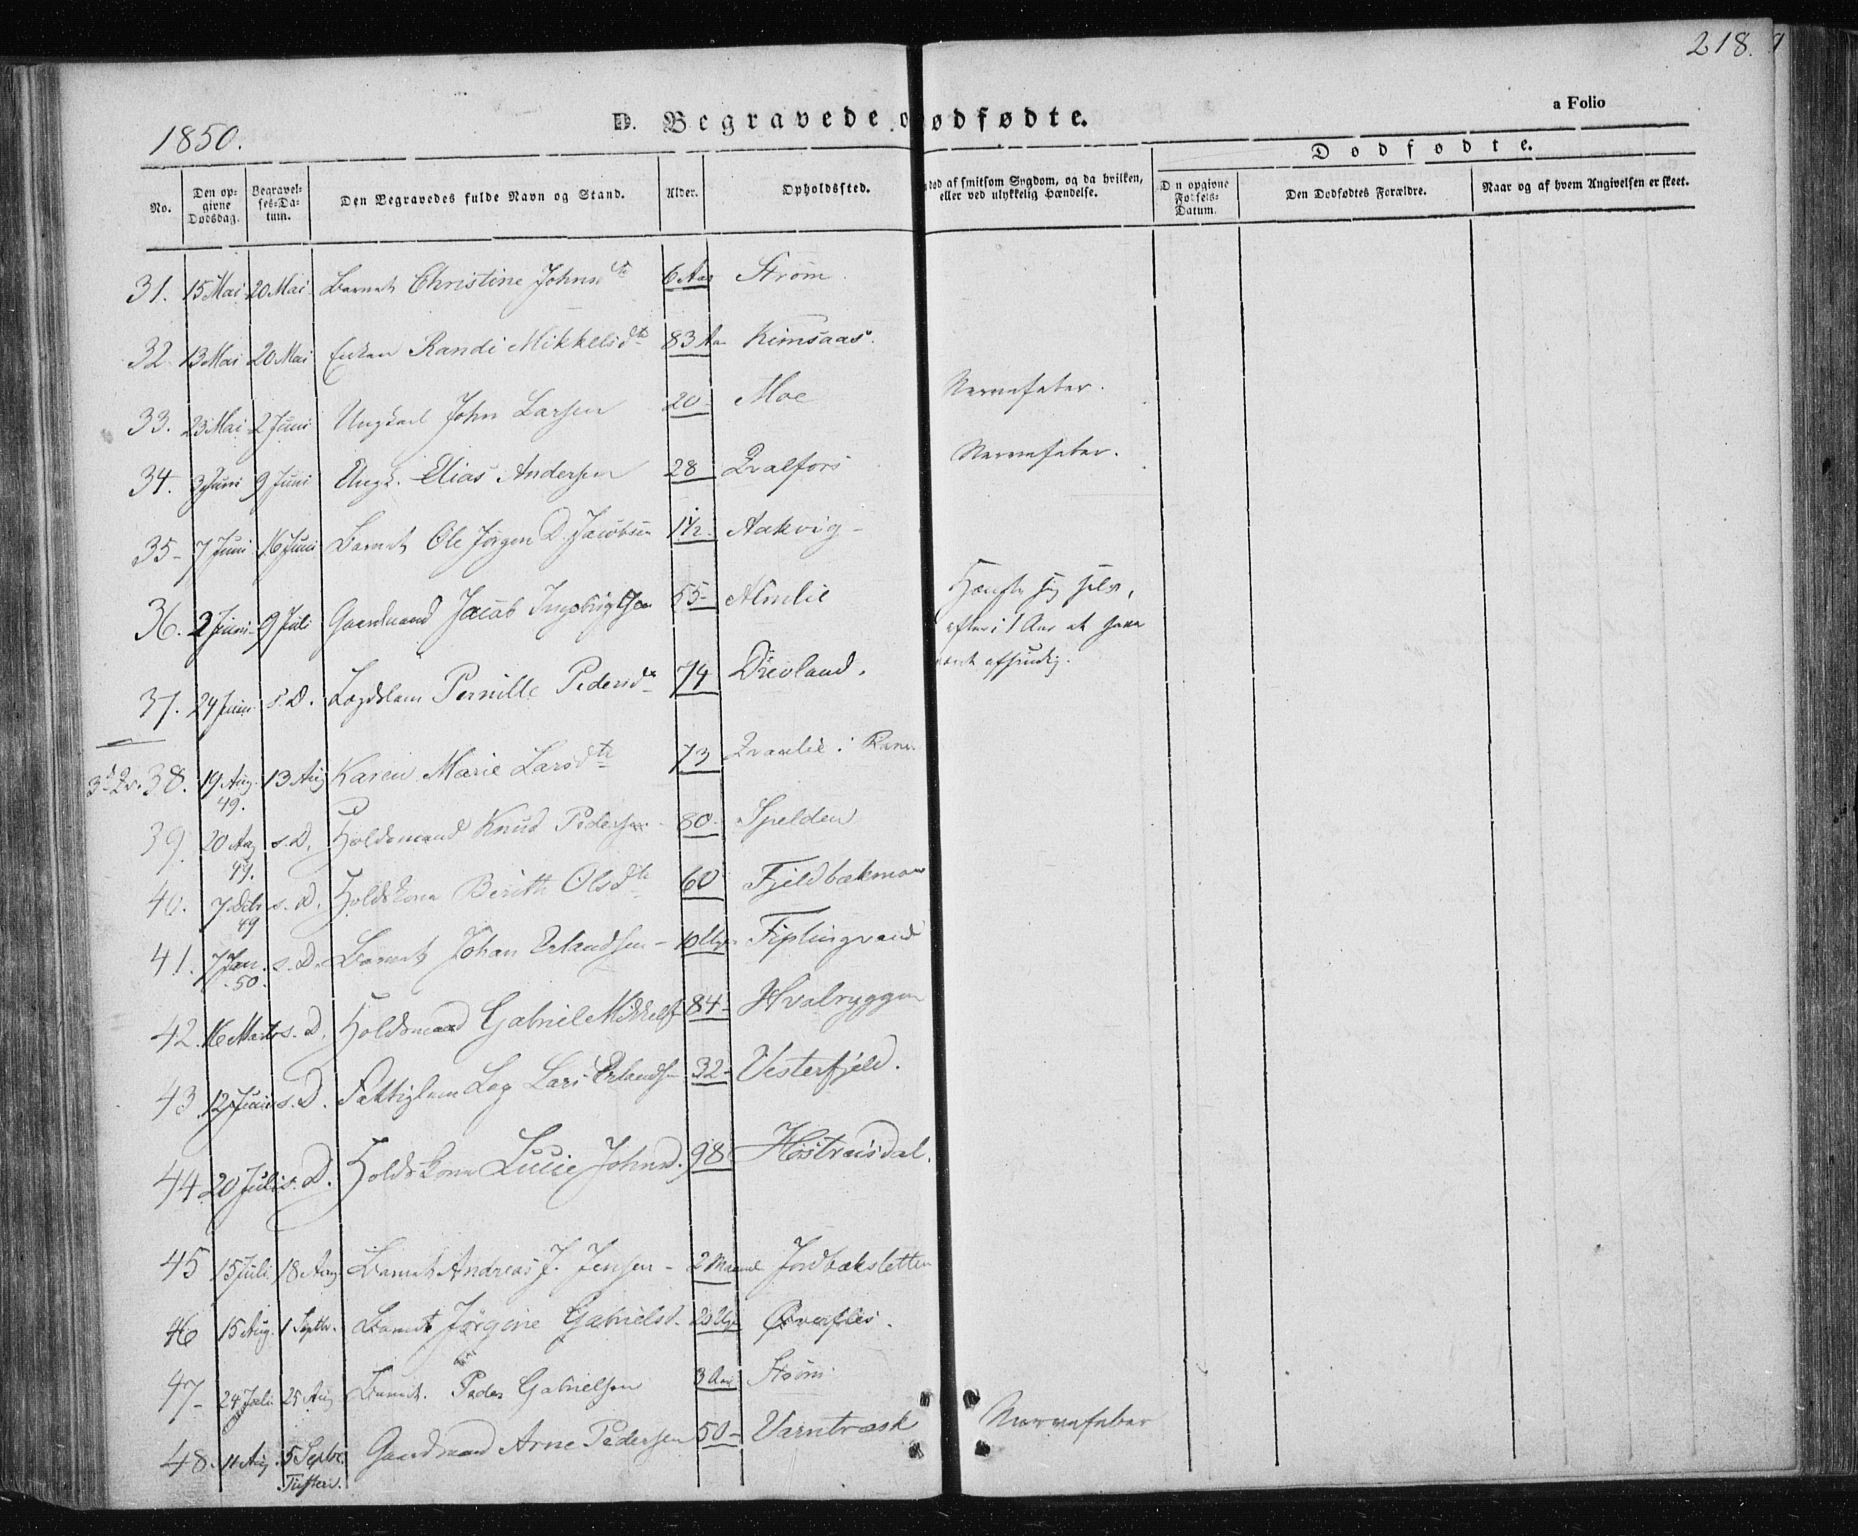 218.
a Folio
D. Begravede o ødfødte.
1850.
Dødfødte.
No. Den opgivne Dødsdag. Begravelses-Datum. Den Begravedes fulde Navn og Stand. Alder. Opholdssted. død af smitsom Sygdom, og da hvilken, eller ved ulykkelig Hændelse. Den opgivne Fødsels-Datum. Den Dødfødtes Forældre. Naar og af hvem Angivelsen er skeet.
31. 15 Mai 20 Mai Barnet Christine Johnsdtr 6 Aar Strøm.
32. 13 Mai 20 Mai Enken Randi Mikkelsdtr 83 Aar Kimsaas.
33. 23 Mai 2 Juni Ungkarl John Larsen 20 Moe Nervefeber.
34. 3 Juni 9 Juni Ungk. Elias Andersen 28 Qvalfors Nervefeber.
35 7 Juni 16 Juni Barnet Ole Jørgen D. Jacobsen 1½ Aakvig
36. 2 Juni 9 Juli Gaardmand Jacob Ingebrigtsen 55 Almlie Hængte sig selv,
efter i 1 Aar at have
været afsindig.
37. 24 Juni s. D. Lægdslem Pernille Pedersdtr 74 Drevland.
38. 19 Aug. 49. 13 Aug Karen Marie Larsdtr 73 Qvanlie i Ranen
39. 20 Aug 49. s. D. Koldsmand Knud Pedersen 80 Spelden
40. 7 Octr 49 s. D. Koldskone Berith Olsdtr 60 Fjeldbækmoe
41. 7 Jan. 50. s. D. Barnet Johan Erlandsen 10 Uger Fiplingvand
42. 16 Marts s. D. Koldsmand Gabriel Mikkels. 84 Hvalryggen
43 12 Juni s. D. Fattiglem Lap Lars Erlands. 32 Vesterfjeld.
44 20 Juli s. D. Koldskone Lucie Johnsd. 98 Høstraisdal.
45 15 Juli 18 Aug Barnet Andreas J. Jensen 2 Maaned Jordbæksletten
46 15 Aug. 1 Septbr. Barnet Jørgine Gabrielsd. 23 Uger
47 24 Juli 25 Aug Barnet Peder Gabrielsen 3 Aar Strøm
48. 11 Aug. 5 Septbr. Gaardmand Arne Pedersen 50 Varntræsk Nervefeber